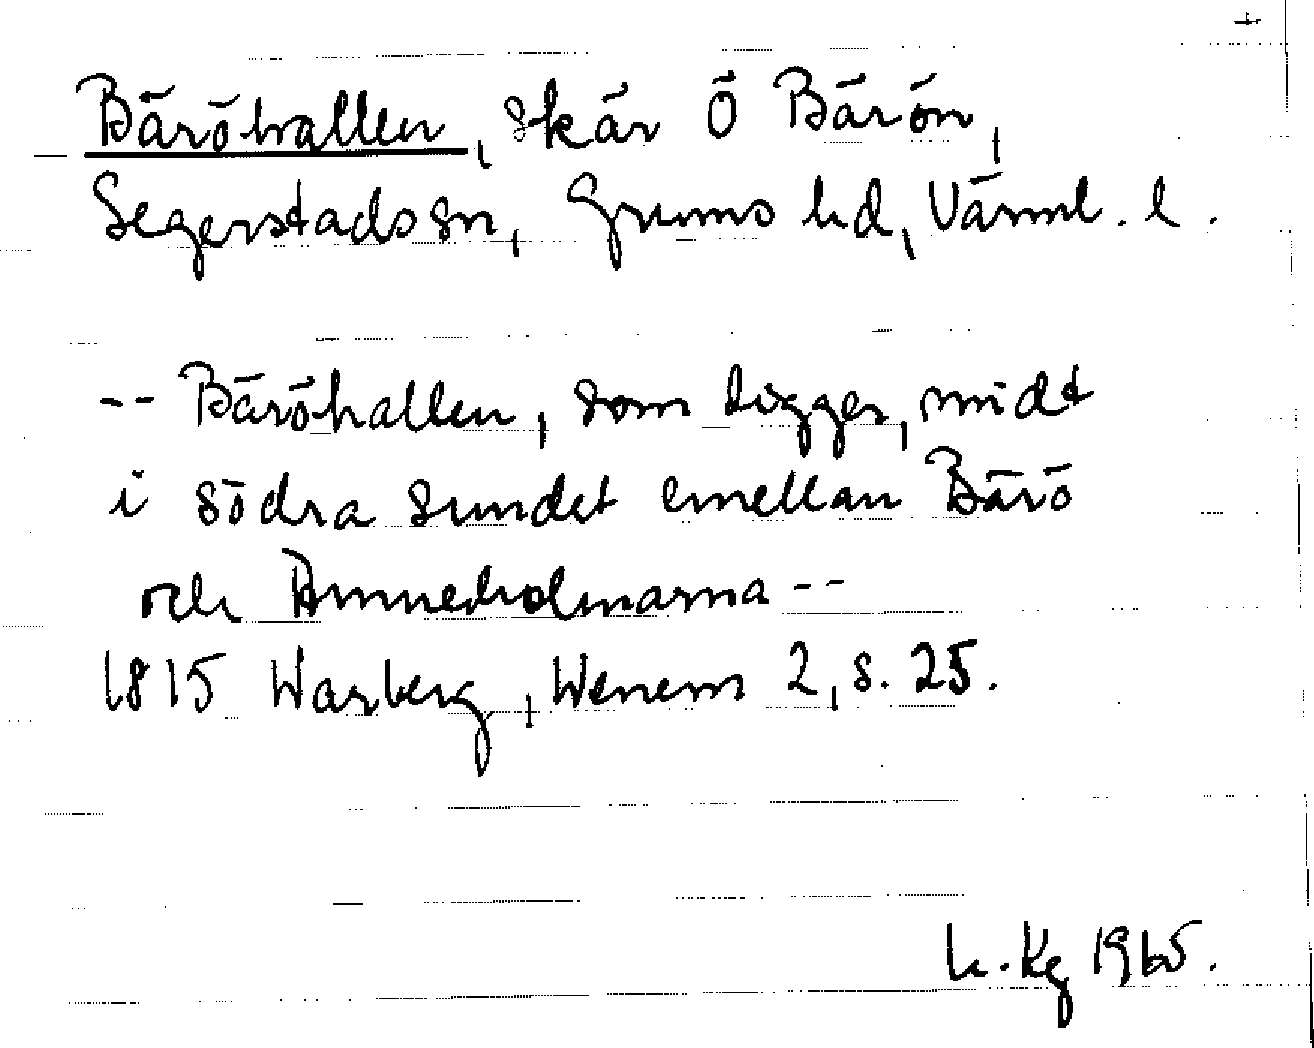 Bäröhallen, skär Ö Bärön,
Segerstads sn, Grums hd, Värml. l.
-- Bäröhallen, som ligger, midt
i södra sundet emellan Bärö
och Amneholmarna --
1815 Warberg, Wenern 2, s. 25.
h. Kg 1965.